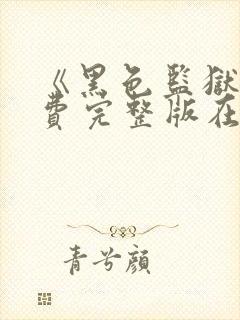 《黑色監獄
費完整版在
青兮顔